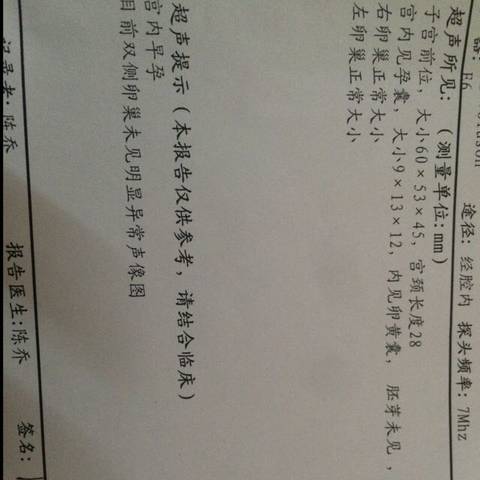 器: E6
途径: 经腔内 探头频率: 7Mhz
超声所见: (测量单位:mm)
子宫前位, 大小60×53×45, 宫颈长度28
宫内见孕囊, 大小9×13×12, 内见卵黄囊, 胚芽未见,
右卵巢正常大小
左卵巢正常大小
超声提示 (本报告仅供参考, 请结合临床)
宫内早孕
目前双侧卵巢未见明显异常声像图
记录者: 陈乔 报告医生:陈乔 签名: